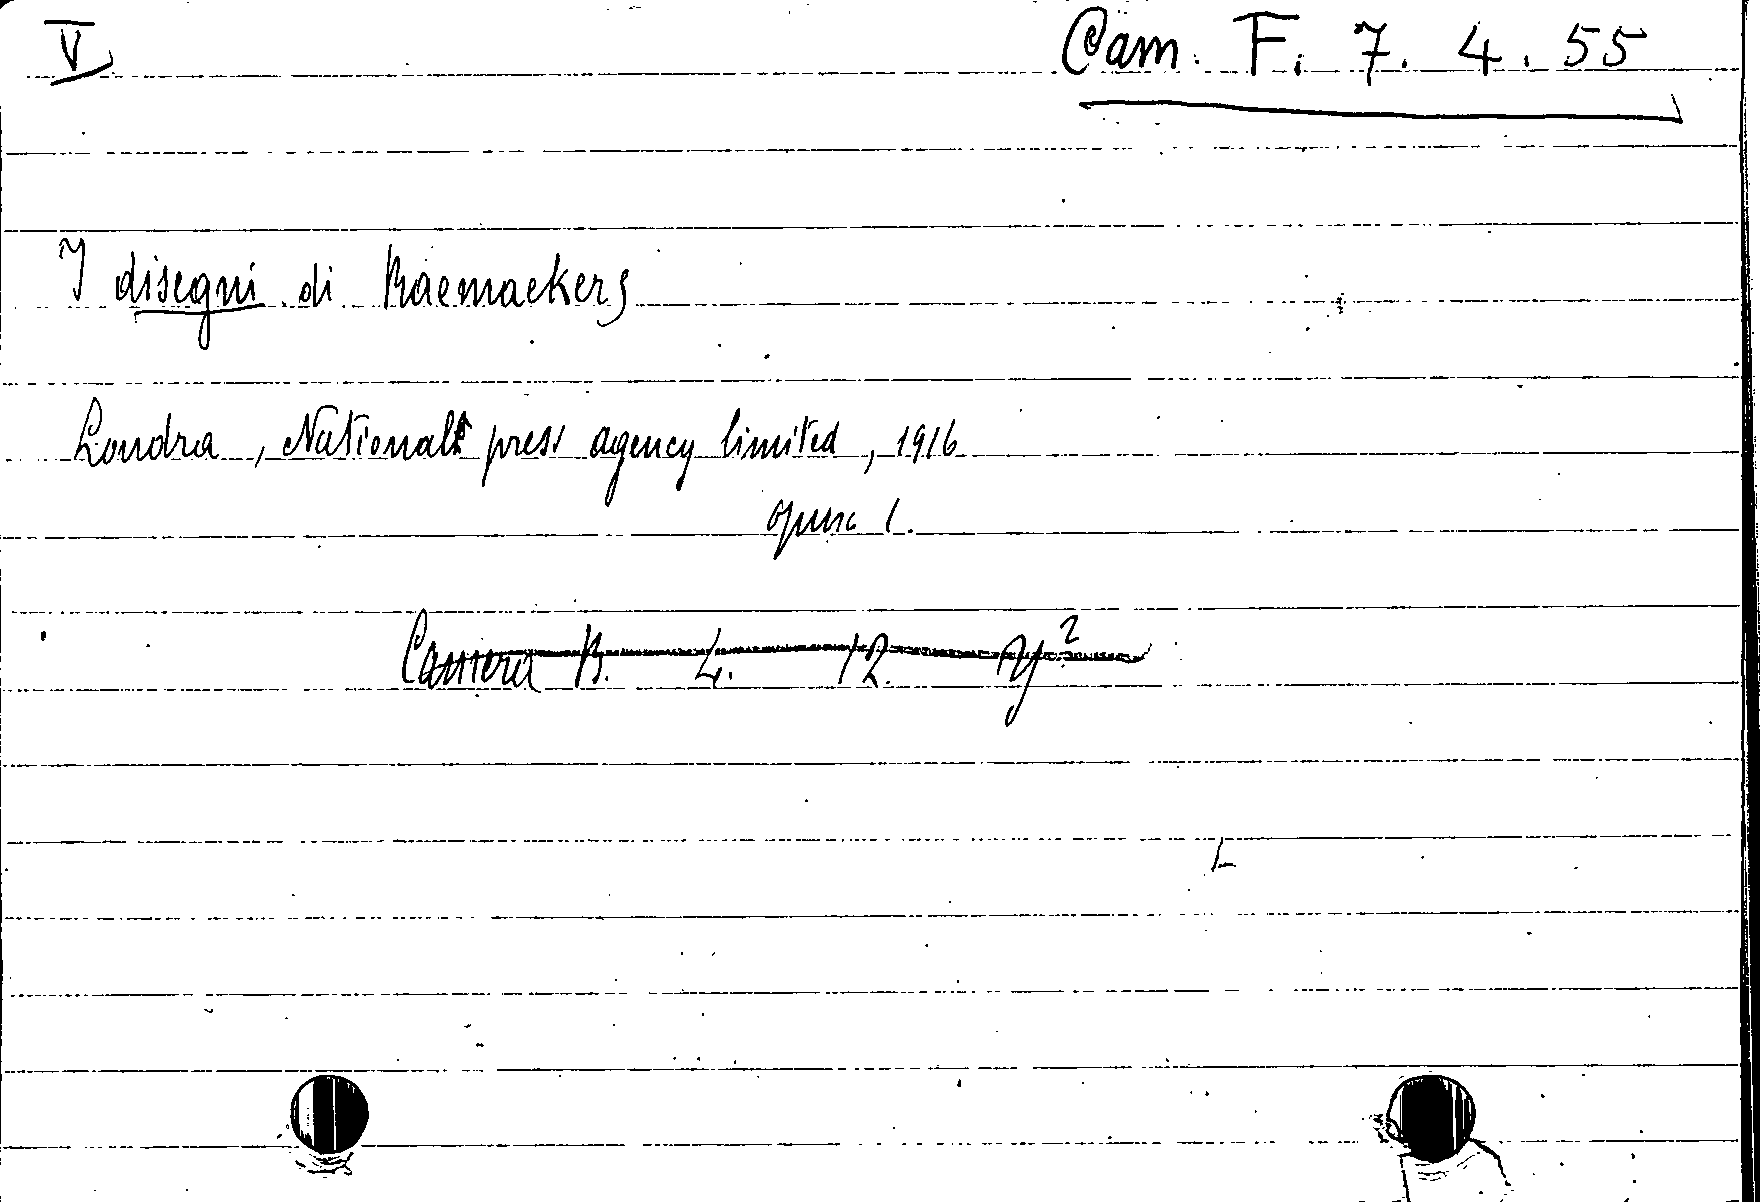 V
Cam. F. 7. 4. 55
I disegni di Raemaekers
Londra, National press agency limited, 1916
opusc 1.
Camera B. 4. 12. y²
L